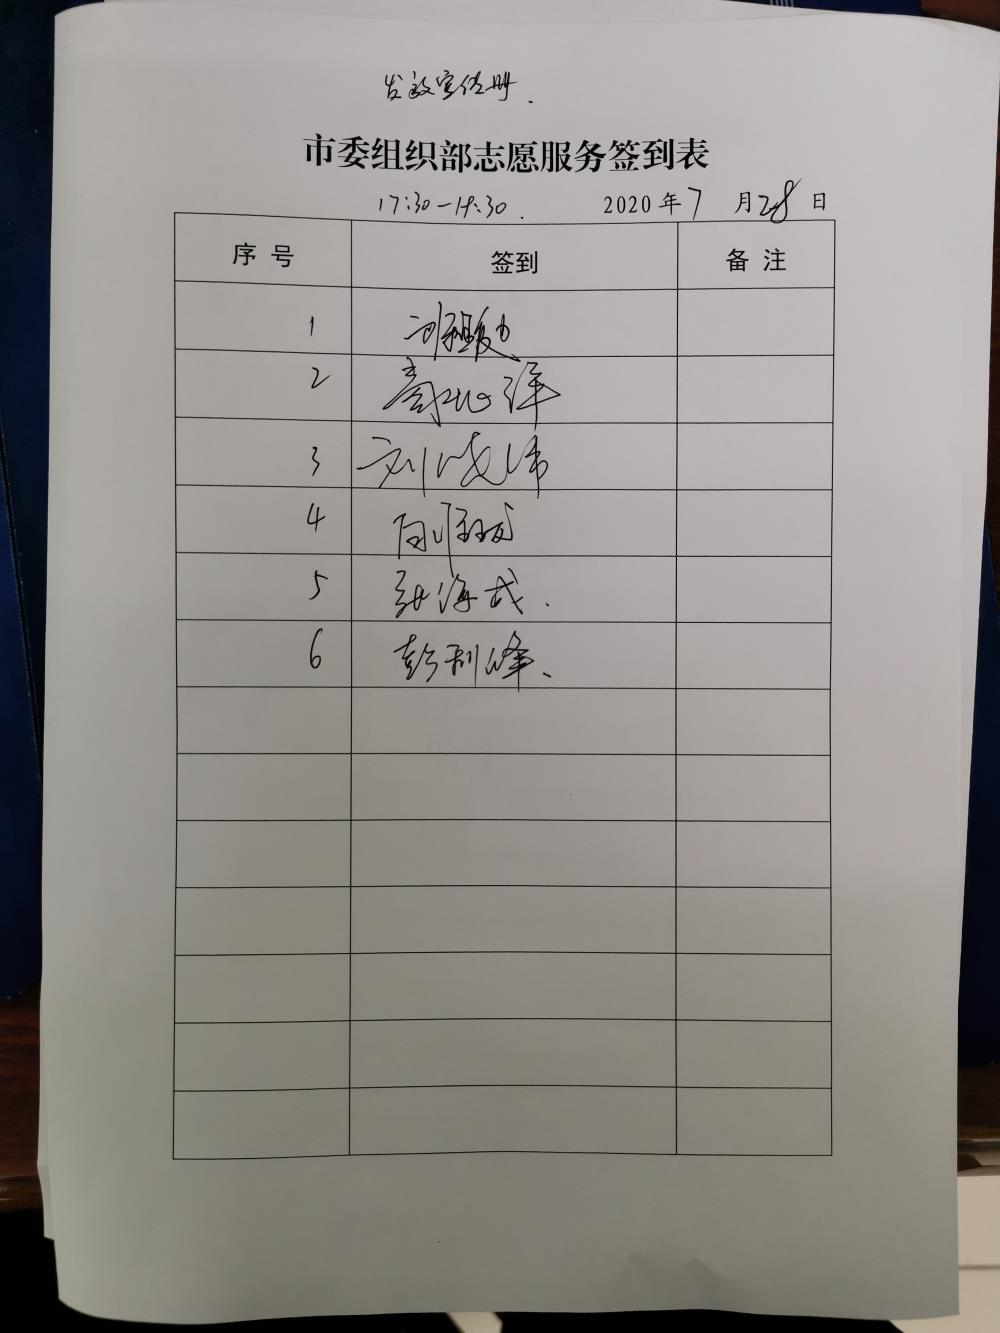 发放宣传册.
市委组织部志愿服务签到表
17:30-19:30. 2020年7月28日
序号 签到 备注
1
2
3 刘晓伟
4
5 张海成.
6 彭利峰、